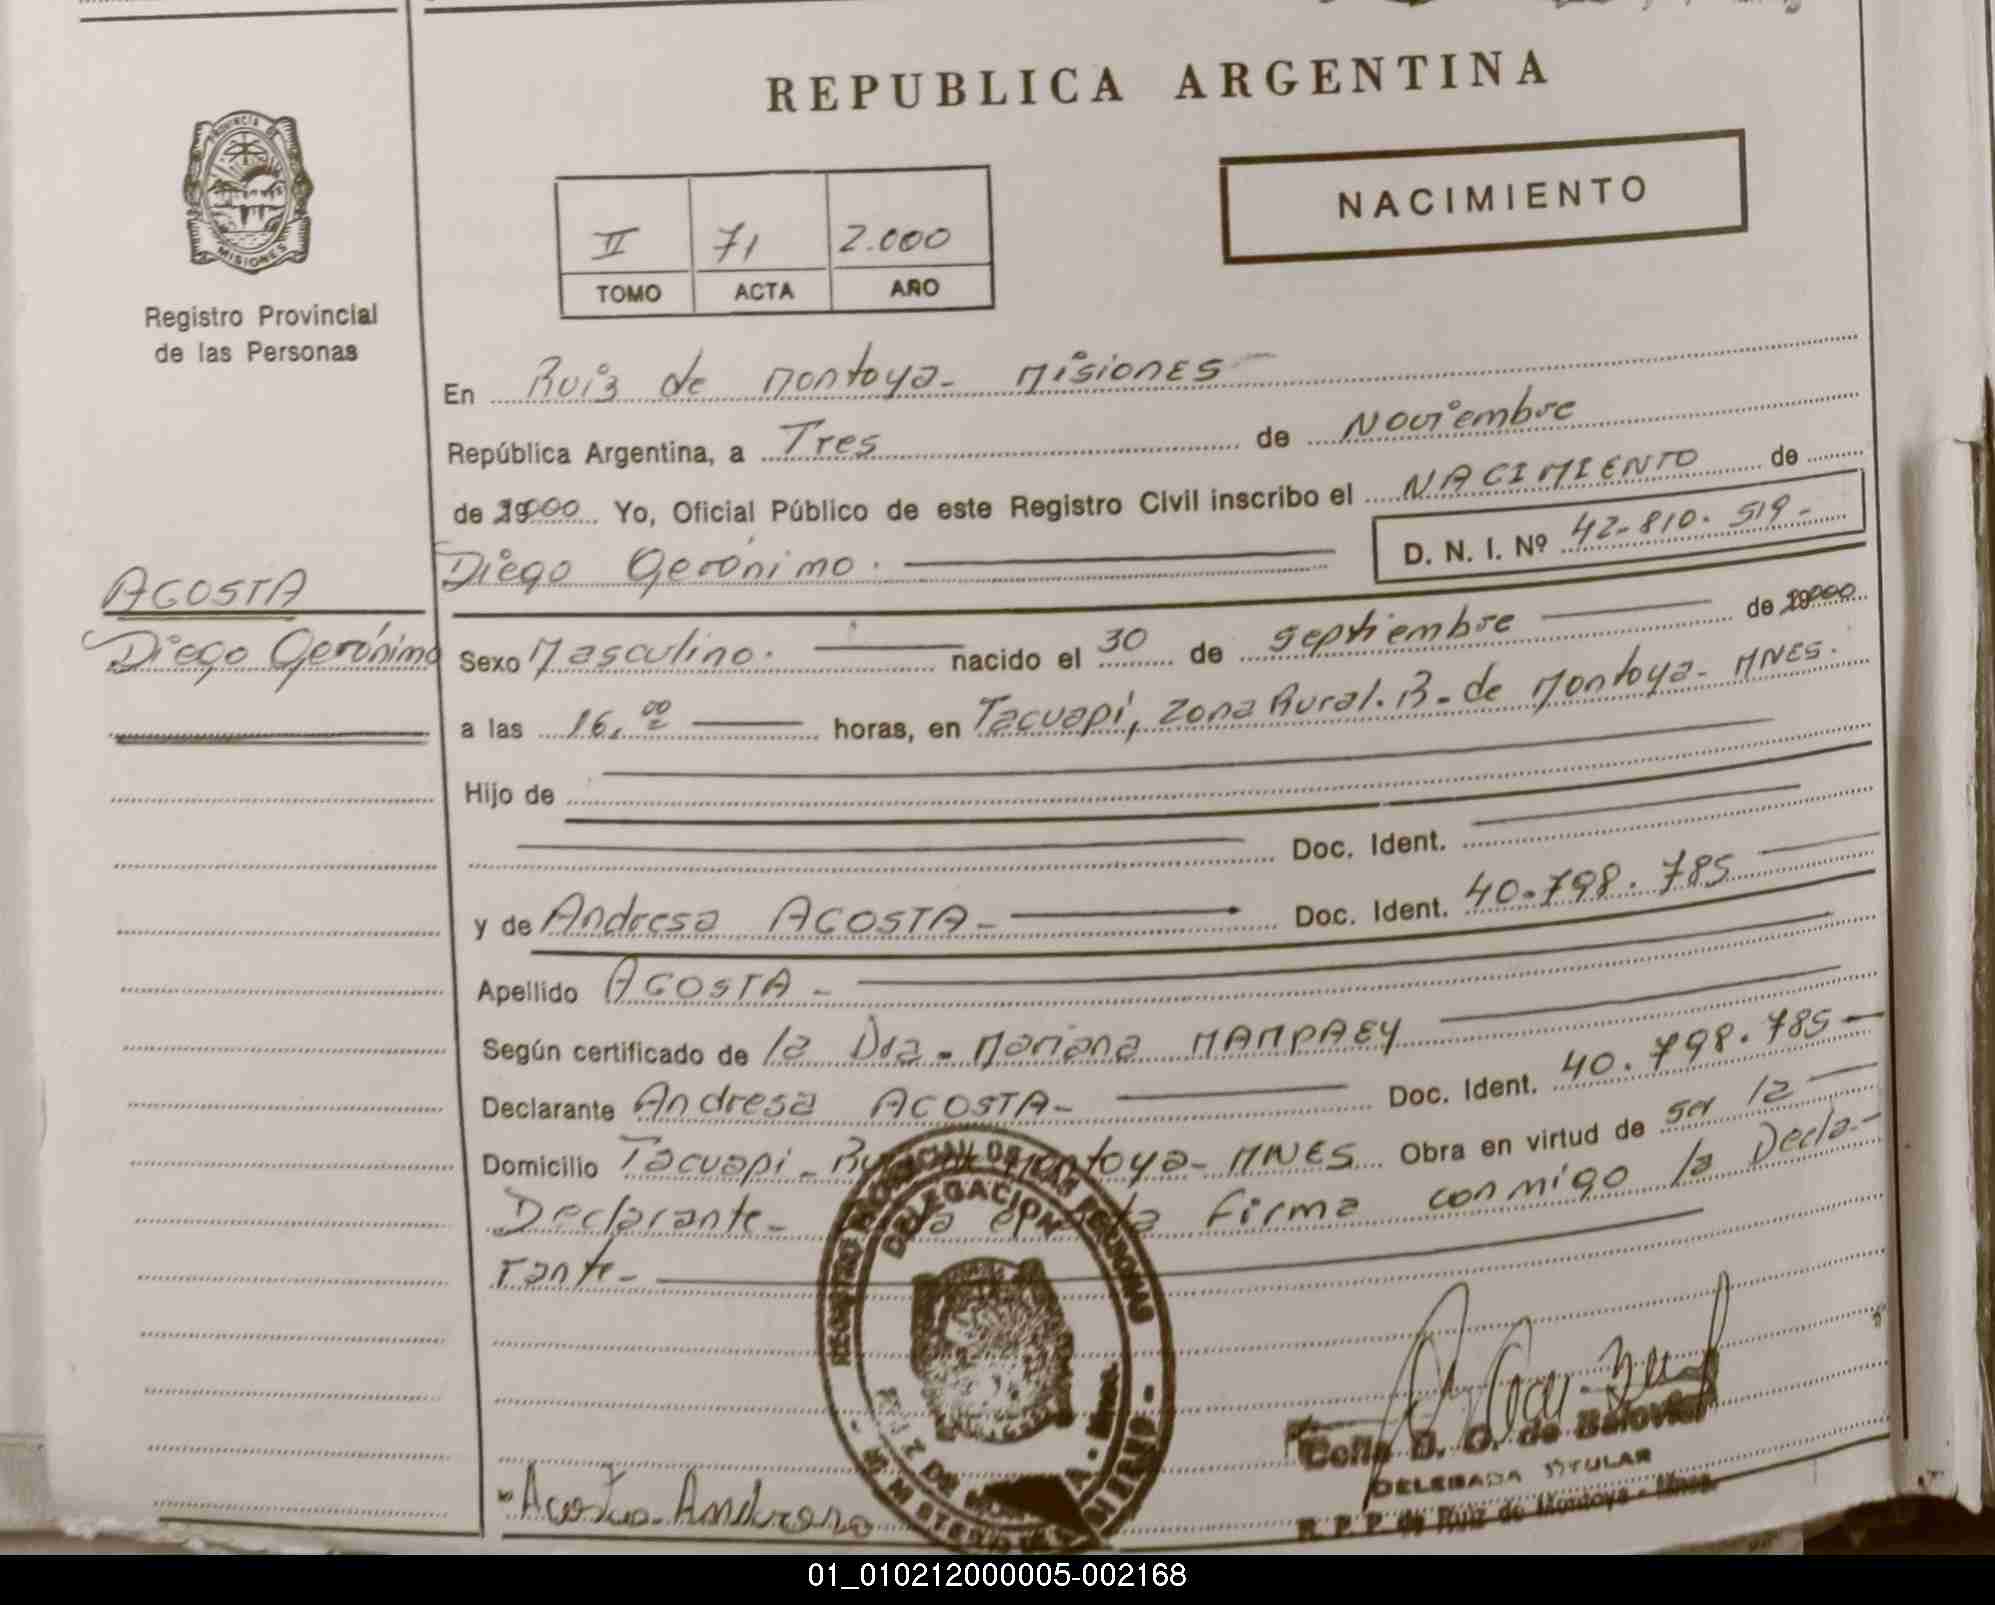 REPUBLICA ARGENTINA
PROVINCIA DE MISIONES
Registro Provincial
de las Personas
NACIMIENTO
II 71 2.000
TOMO ACTA AÑO
En Ruiz de Montoya- Misiones
República Argentina, a Tres de Noviembre
de 2000 Yo, Oficial Público de este Registro Civil inscribo el NACIMIENTO de
Diego Gerónimo. D. N. I. Nº 42-810.519-
ACOSTA
Diego Gerónimo
Sexo Masculino. nacido el 30 de septiembre de 2000
a las 16,00 horas, en Tacuapí, zona Rural. R. de Montoya- MNES.
Hijo de
Doc. Ident.
y de Andresa ACOSTA- Doc. Ident. 40.798.785
Apellido ACOSTA-
Según certificado de la Dra. Mariana MAMPAEY
Declarante Andresa ACOSTA- Doc. Ident. 40.798.785-
Domicilio Tacuapi- Ruiz de Montoya- MNES Obra en virtud de ser la
Declarante- firma conmigo la Decla-
rante-
REGISTRO PROVINCIAL DE LAS PERSONAS
DELEGACION
RUIZ DE MONTOYA - Mnes.
Acosta Andresa
DELEGADA TITULAR
R. P. P. de Ruiz de Montoya - Mnes.
01_010212000005-002168